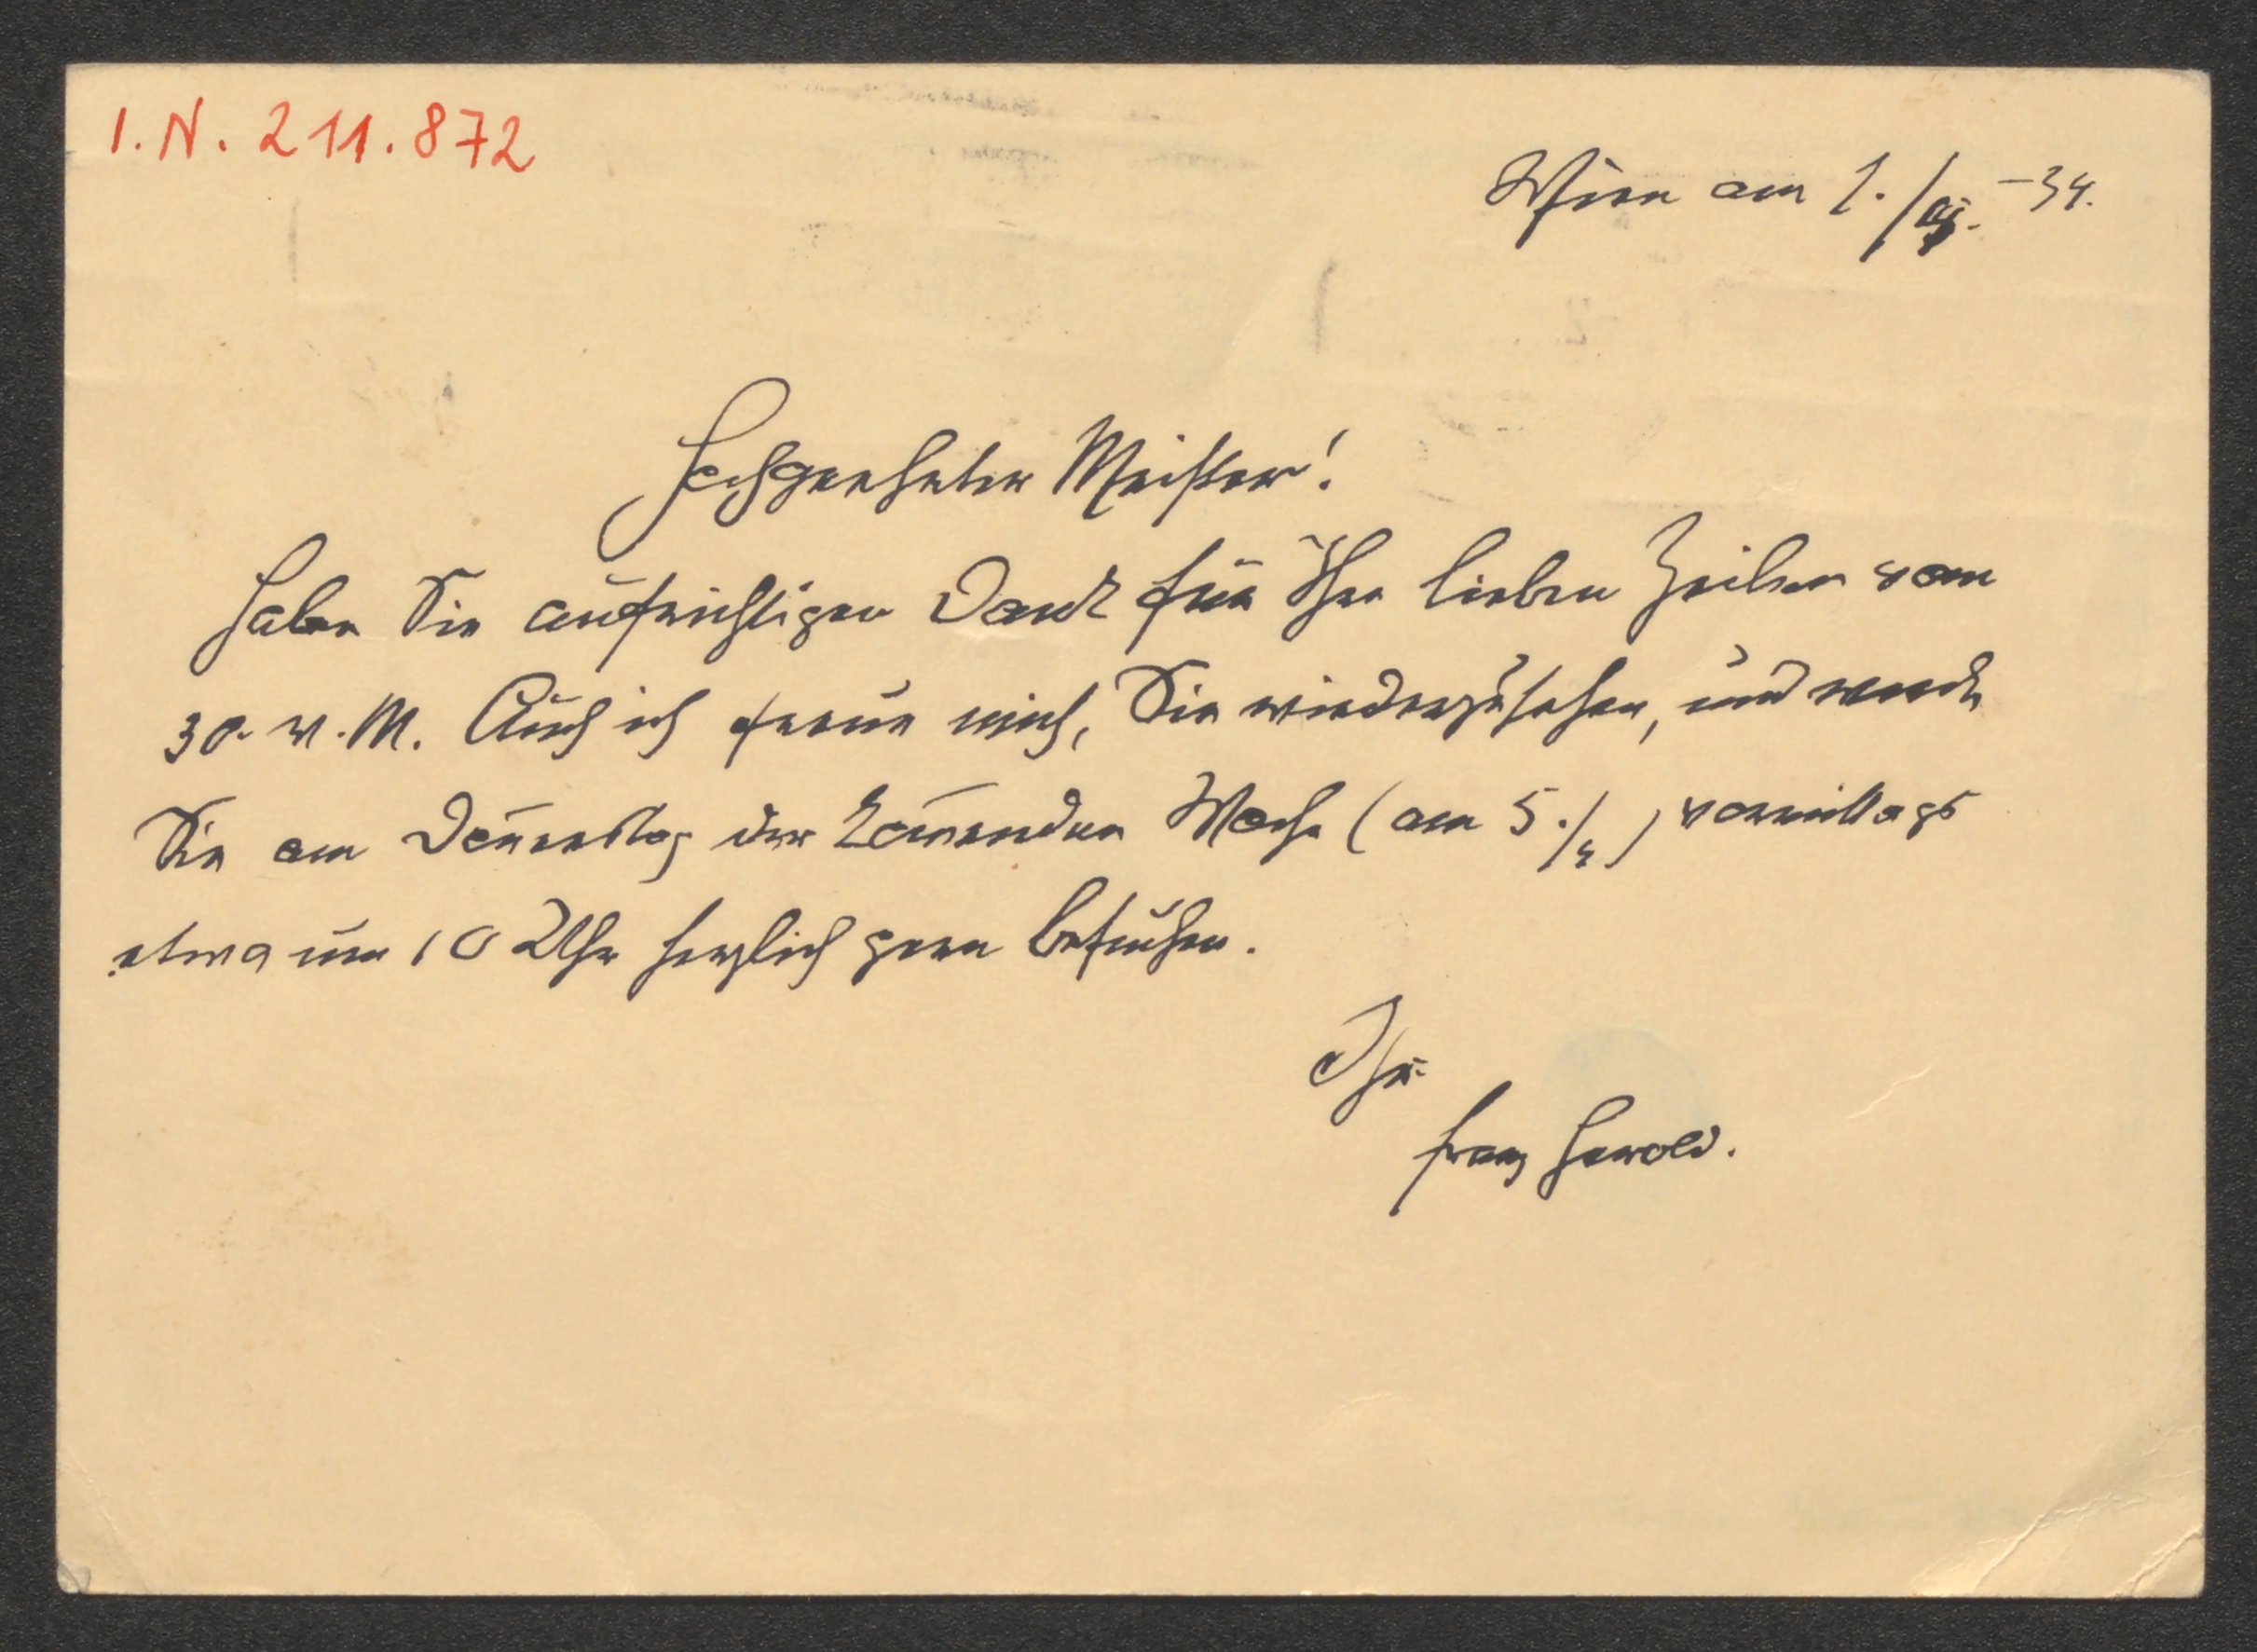 I. N. 211.872
Wien am 1./IV. -34.
Hochgeehrter Meister!
Haben Sie aufrichtigen Dank für Ihre lieben Zeilen vom
30. v. M. Auch ich freue mich, Sie wiederzusehen, und werde
Sie am Donnerstag der kom̅enden Woche (am 5./4) vormittags
etwa um 10 Uhr herzlich gern besuchen.
Ihr
Franz Herold.